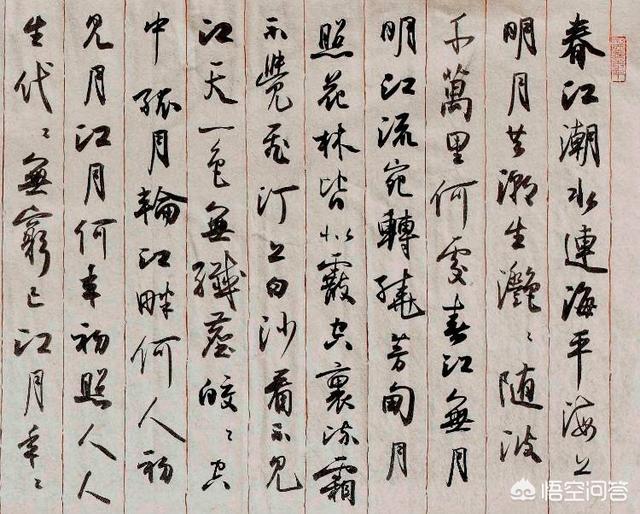 春江潮水連海平海上
明月共潮生灧〻随波
千萬里何處春江無月
明江流宛轉繞芳甸月
照花林皆似霰空裏流霜
不覺飛汀上白沙看不見
江天一色無纖塵皎〻空
中孤月輪江畔何人初
見月江月何年初照人人
生代〻無窮已江月年〻
悟空问答